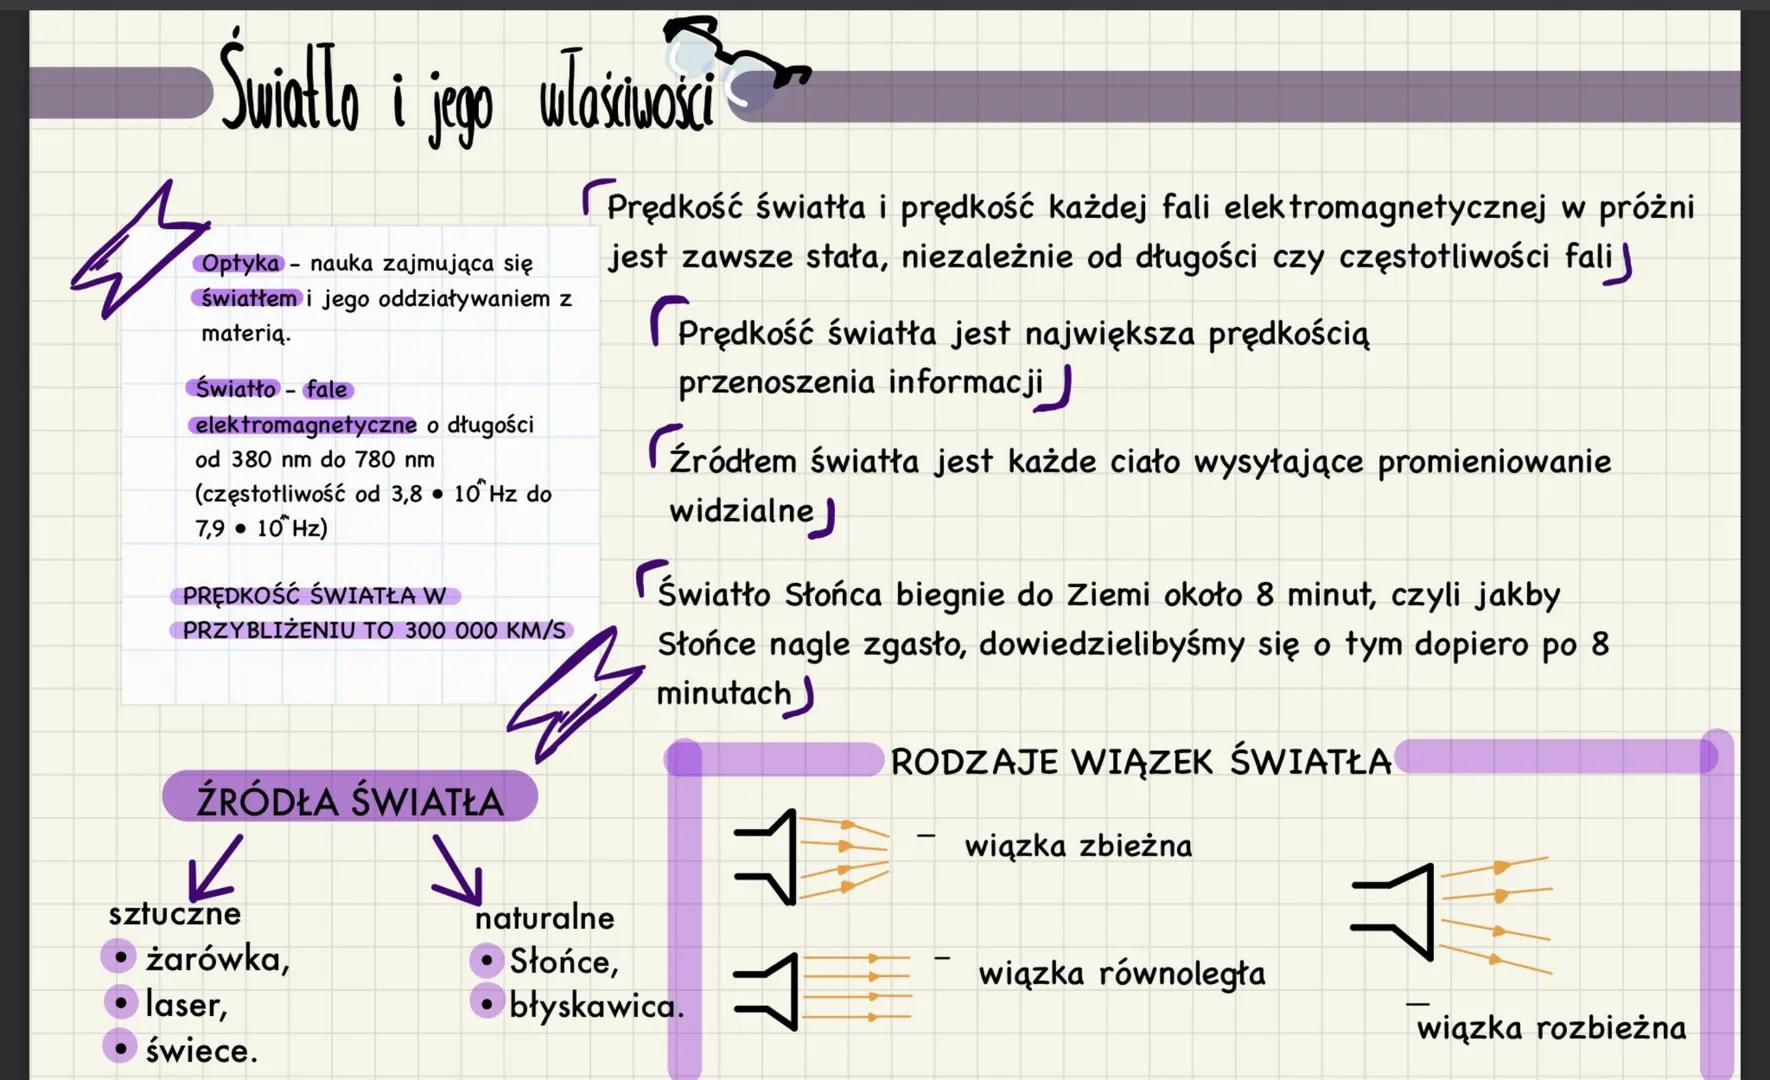 Światło i jego właściwości
Optyka - nauka zajmująca się
światłem i jego oddziaływaniem z
materią.
Światło - fale
elektromagnetyczne o długości
od 380 nm do 780 nm
(częstotliwość od 3,8 • 10 Hz do
7,9 • 10 Hz)
PRĘDKOŚĆ ŚWIATŁA W
PRZYBLIŻENIU TO 300 000 KM/S
Prędkość światła i prędkość każdej fali elektromagnetycznej w próżni
jest zawsze stała, niezależnie od długości czy częstotliwości fali
Prędkość światła jest największa prędkością
przenoszenia informacji
Źródłem światła jest każde ciało wysyłające promieniowanie
widzialne
Światło Słońca biegnie do Ziemi około 8 minut, czyli jakby
Słońce nagle zgasło, dowiedzielibyśmy się o tym dopiero po 8
minutach
ŹRÓDŁA ŚWIATŁA
sztuczne
• żarówka,
• laser,
• świece.
naturalne
• Słońce,
• błyskawica.
RODZAJE WIĄZEK ŚWIATŁA
- wiązka zbieżna
- wiązka równoległa
- wiązka rozbieżna